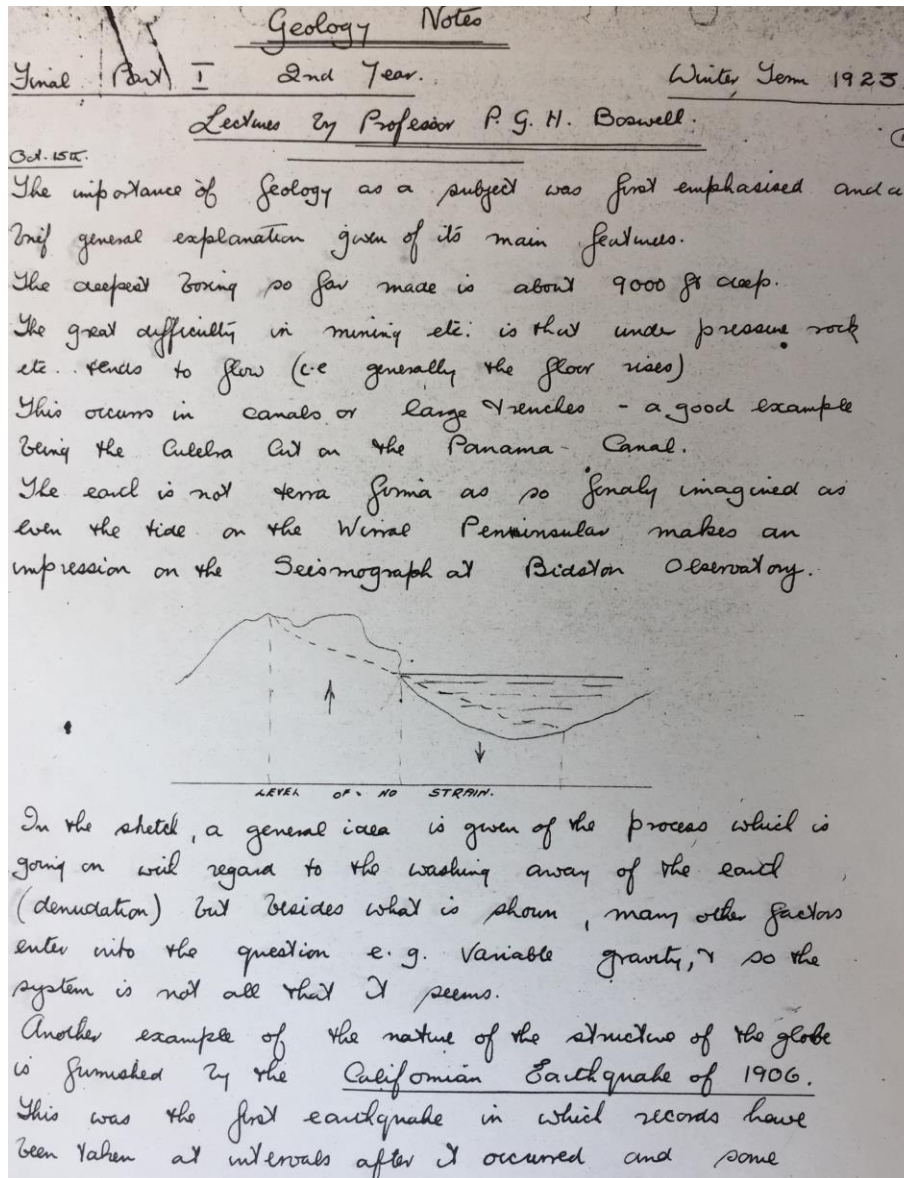 Geology Notes
Final Part I 2nd Year. Winter Term 1923
Lectures by Professor P. G. H. Boswell.
Oct. 15th.
The importance of geology as a subject was first emphasised and a
brief general explanation given of its main features.
The deepest boring so far made is about 9000 ft deep.
The great difficulty in mining etc. is that under pressure rock
etc.. tends to flow (i.e generally the floor rises)
This occurs in canals or large trenches - a good example
being the Culebra Cut on the Panama - Canal.
The earth is not terra firma as so fondly imagined as
even the tide on the Wirral Penninsular makes an
impression on the Seismograph at Bidston Observatory.
LEVEL OF NO STRAIN.
In the sketch, a general idea is given of the process which is
going on with regard to the washing away of the earth
(denudation) but besides what is shown, many other factors
enter into the question e.g. Variable gravity, & so the
system is not all that it seems.
Another example of the nature of the structure of the globe
is furnished by the Californian Earthquake of 1906.
This was the first earthquake in which records have
been taken at intervals after it occurred and some